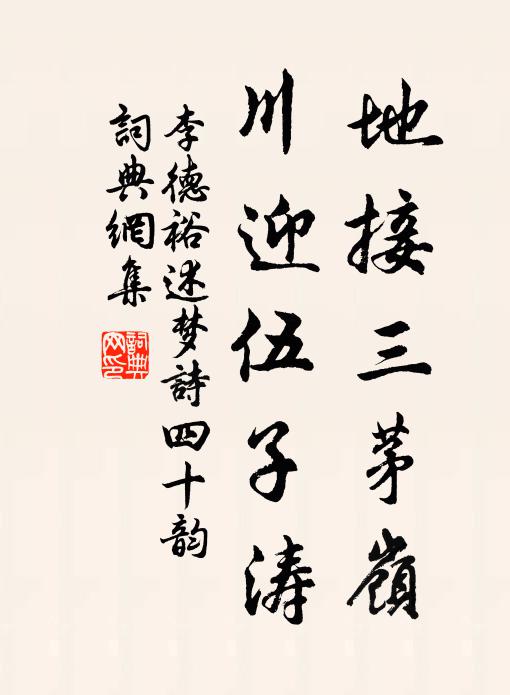 地接三茅嶺
川迎伍子涛
李德裕述梦詩四十韵
詞典網集
詞典
网印